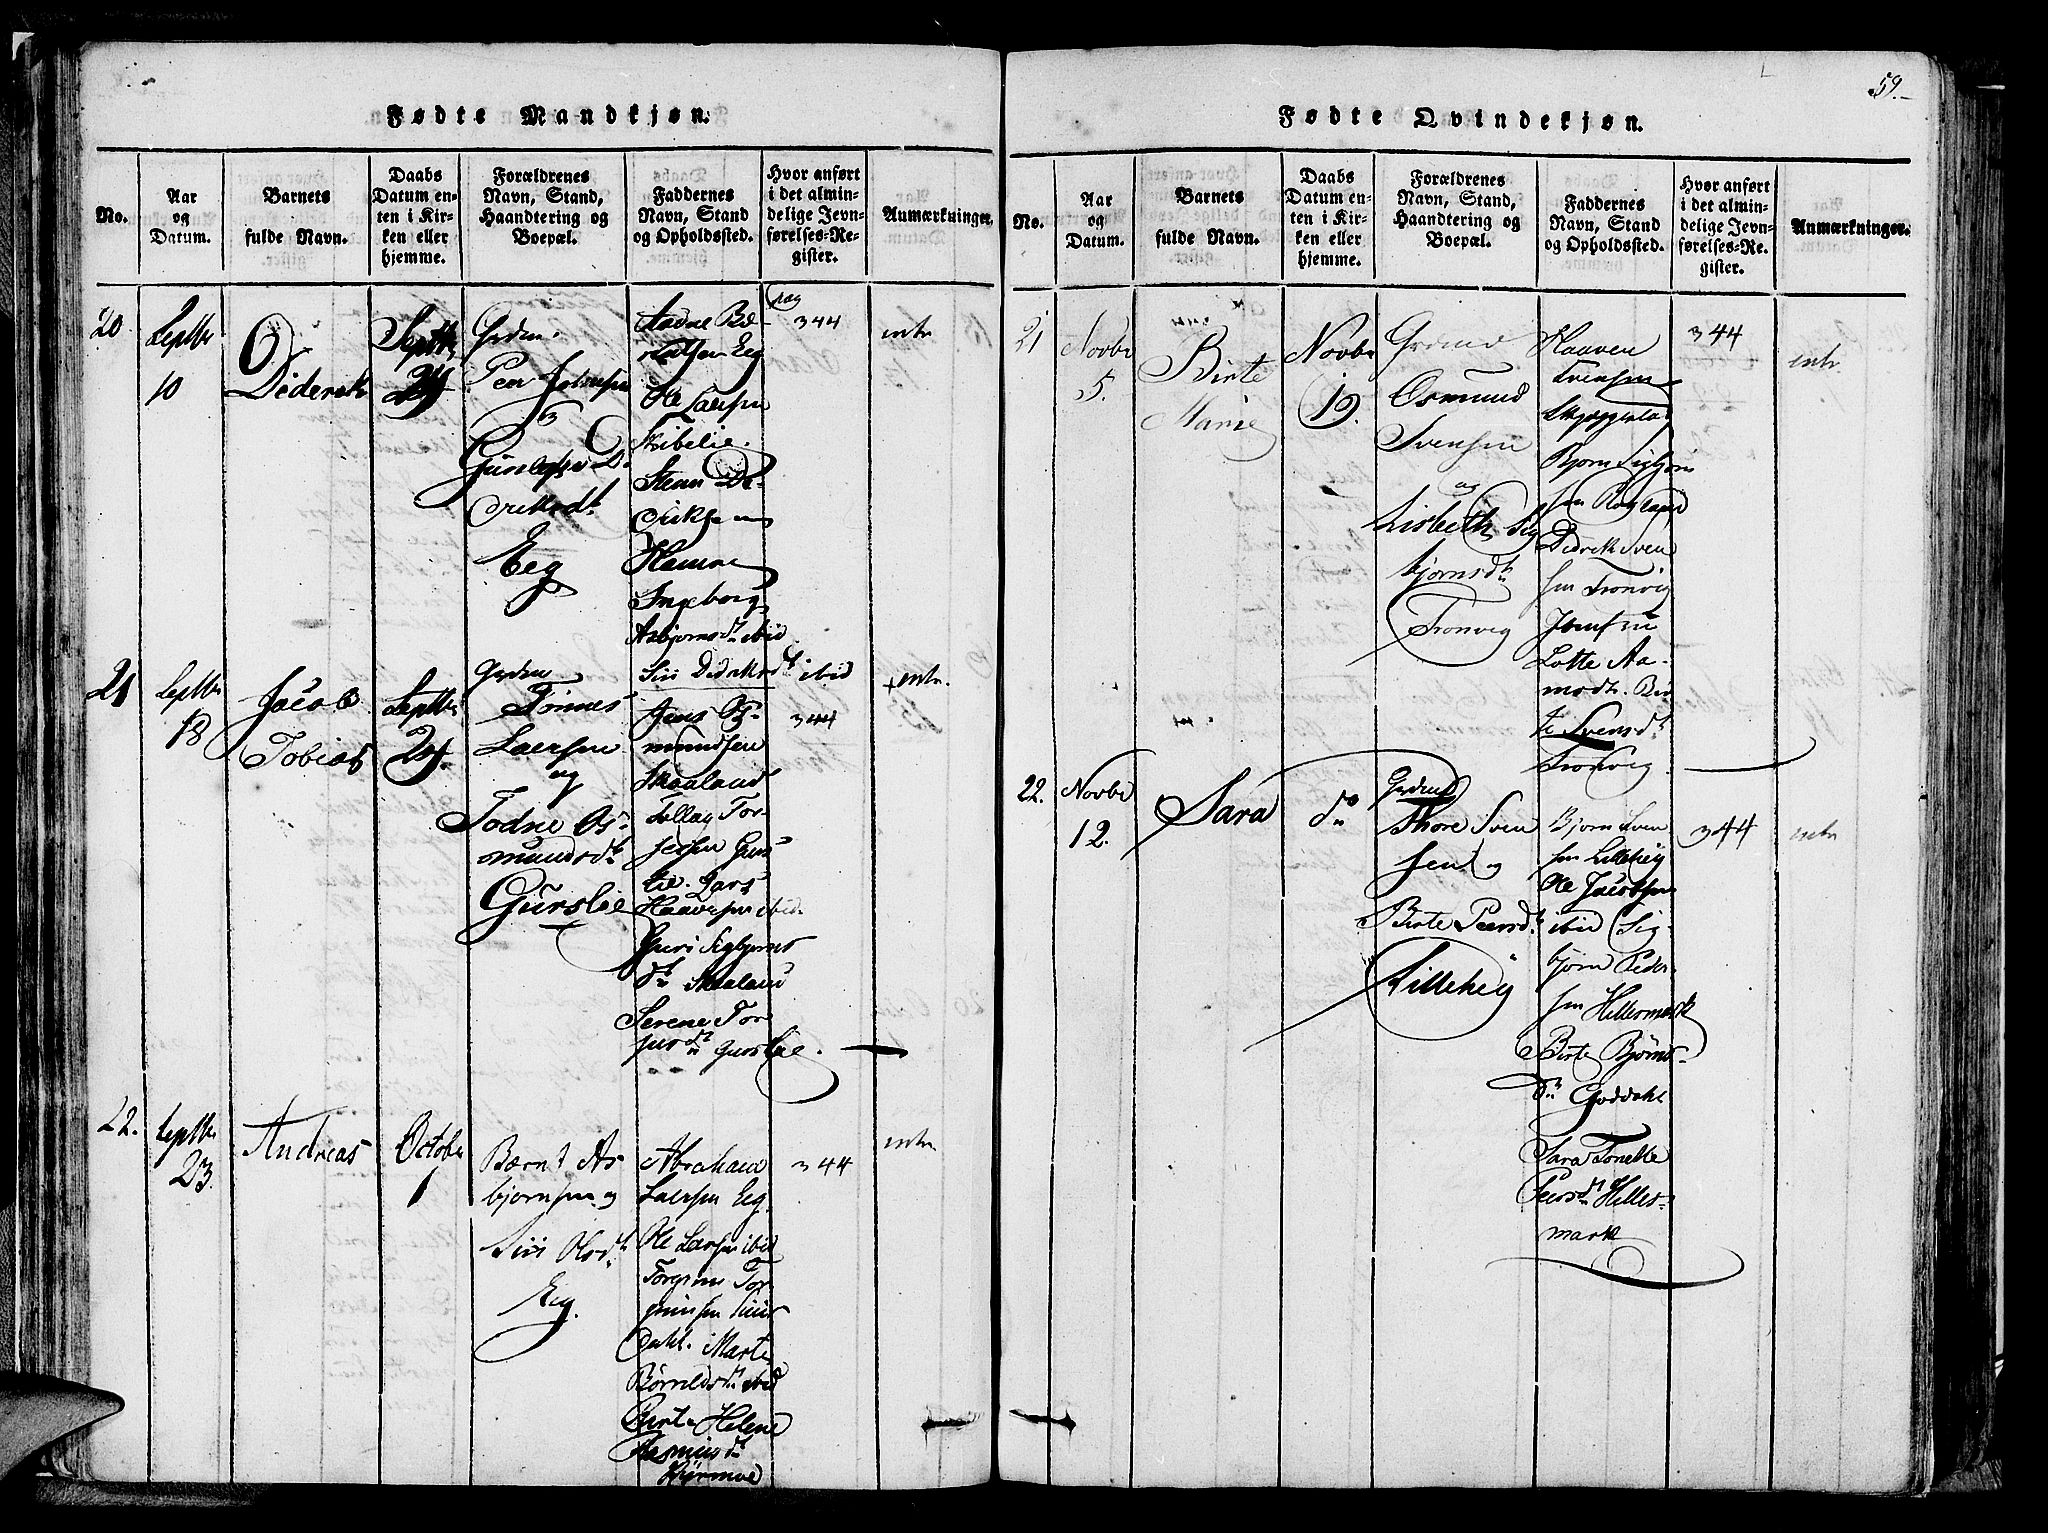 59.
Fødte Mandkjøn.
No.
Aar
og
Datum.
Barnets
fulde Navn.
Daabs
Datum en-
ten i Kir-
ken eller
hjemme.
Forældrenes
Navn, Stand,
Haandtering og
Boepæl.
Faddernes
Navn, Stand
og Opholdssted.
Hvor anført
i det almin-
delige Jevn-
førelses-Re-
gister.
Anmærkninger.
20
Septbr
10
Diderik
Septbr
24
Grden.
Peer
Eeg
Ole Laersen
Stibelie.
Hamre
Ingeborg
Asbjornsdtr ibid
Siri Didriksdtr ibid
pag
344
intr
21
Septbr
18
Jacob
Tobias
Septbr
24.
Grden
Tønnes
Laersen
og
Todne Os-
mundsdtr
Gurslie
Jens Os-
mundsen
Skaaland
Tollag Tor-
jersen Gurs-
lie. Lars
Haaversen ibid.
Guri Sigbjorns
dtr Skaaland
Serene Tor-
jersdtr Gurslie.
344
intr.
22.
Septbr
23.
Andreas
October
1
Bærnt As
bjornsen og
Siri Olsdtr
Eeg.
Abraham
Laersen Eeg
Ole Larsen ibid
Torgrim Tor
grimsen
Dahl. Marte
ibid
Berte Helene
Rasmusdtr
344
intr
Fødte Qvindekjøn.
No.
Aar
og
Datum.
Barnets
fulde Navn.
Daabs
Datum en-
ten i Kir-
ken eller
hjemme.
Forældrenes
Navn, Stand,
Haandtering og
Boepæl.
Faddernes
Navn, Stand
og Opholdssted.
Hvor anført
i det almin-
delige Jevn-
førelses-Re-
gister.
Anmærkninger.
21
Novbr
5.
Birte
Marie
Novbr
19.
Osmund
Svensen
og
Lisbeth Sig
bjornsdtr
Tronvig
Haaven
Svensen
Skjeggestad
Bjorn Sigbjorn
sen Rogland
Didrik Sven
sen Tronvig
Lotte Aa-
modt. Bir
te Svensdtr
Tronvig
344
intr
22.
Novbr
12.
Sara
do
Grdmd
Thore Sven
sen og
Birte Peersdtr
Lillehey
Bjorn Sven
sen Lillehey
Ole Jacobsen
ibid Sig-
bjørn Peder-
sen Hellesmark
Birte Bjørns-
dtr Goddahl
Sara Tonette
Peersdtr Helles-
mark
344
intr